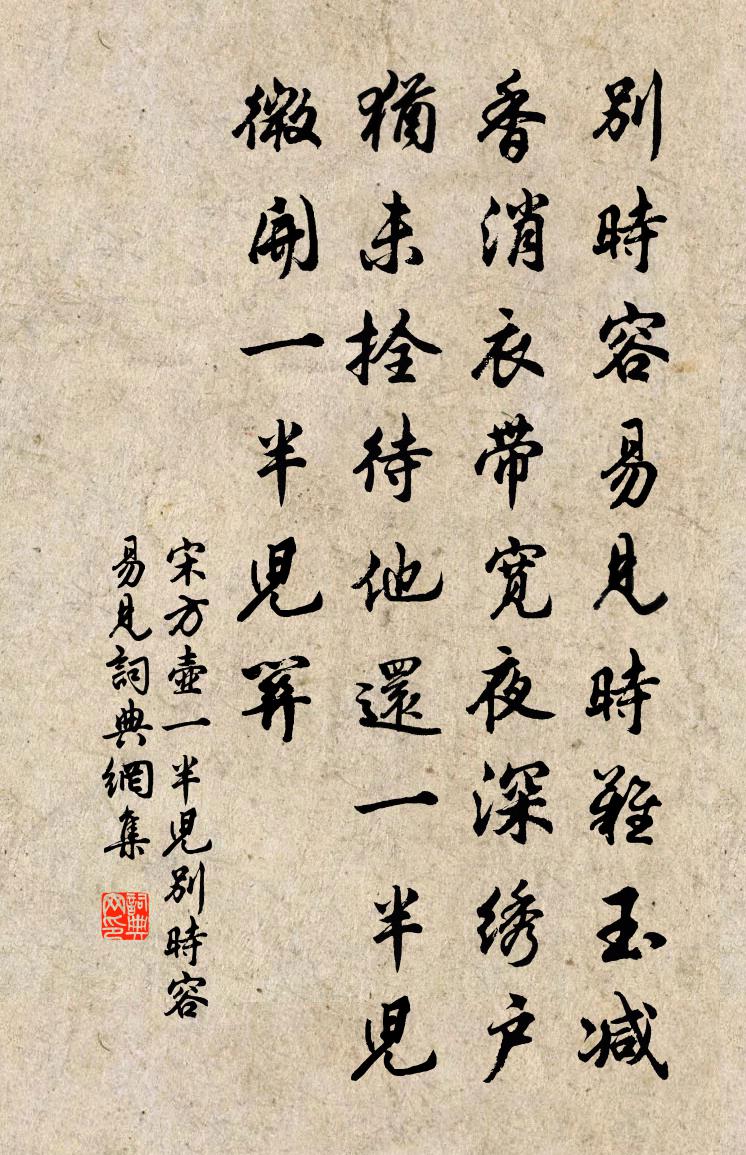 別時容易見時難玉减
香消衣带寬夜深綉户
猶未拴待他還一半児
微開一半児関
宋方壺一半児別時容
易見詞典網集
詞典
网印